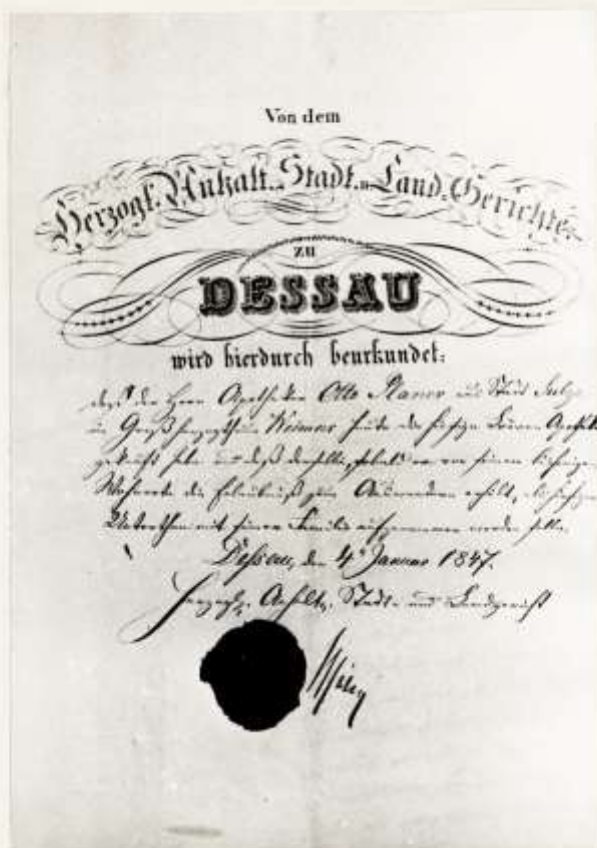 Von dem
Herzogl. Anhalt. Stadt- u. Land-Gerichte
zu
DESSAU
wird hierdurch beurkundet:
daß der Herr Apotheker Otto Planer aus Stadt Sulza
im Großherzogthum Weimar heute die hiesige Löwen Apotheke
gekauft habe und daß derselbe, sobald er von seinem bisherigen
Wohnorte die Erlaubniß zum Auswandern erhält, als hiesiger
Unterthan mit seiner Familie aufgenommen werden solle.
Dessau, den 4. Januar 1847.
Herzogl. Anhalt. Stadt- und Landgericht